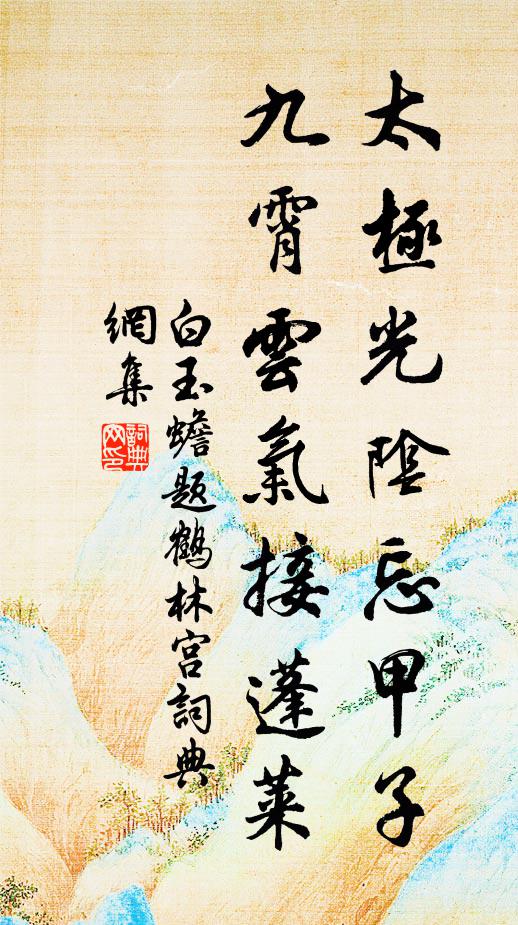 太極光陰忘甲子
九霄雲氣接蓬萊
白玉蟾题鶴林宮詞典
網集
詞典网印